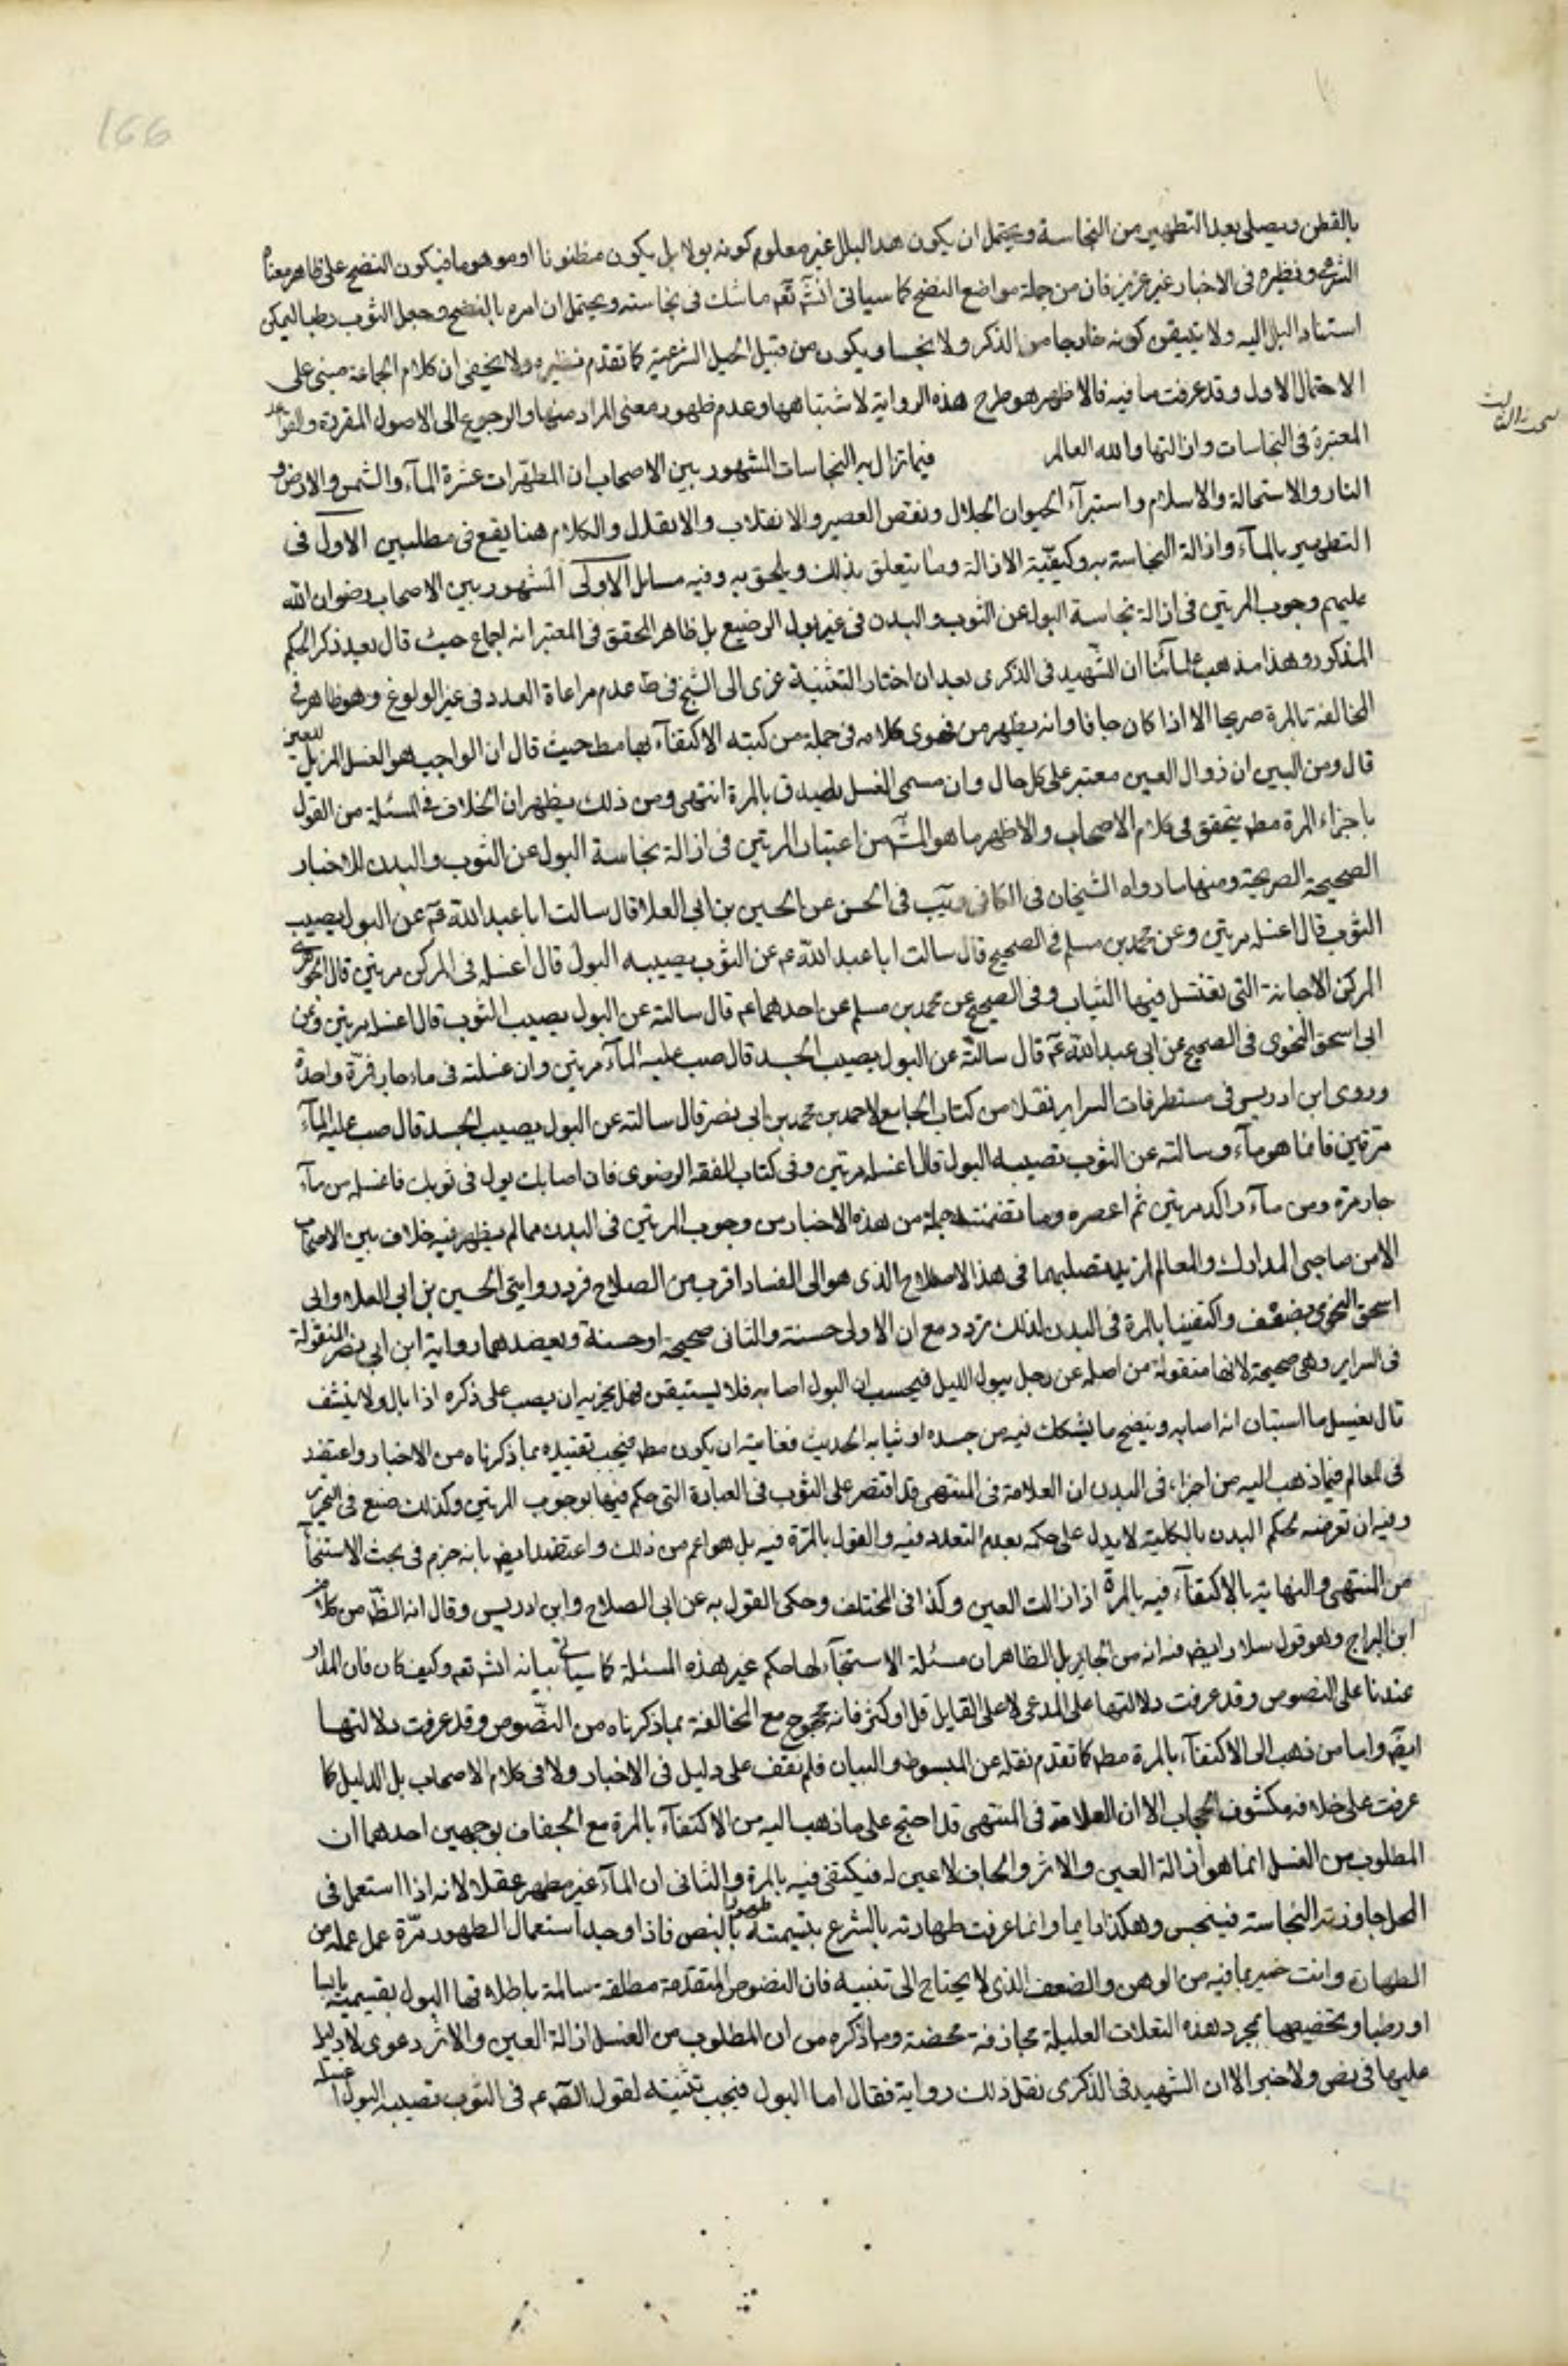 166
بالقطن ويصلى بعد التطهير من النجاسة ويحتمل ان يكون هذا البلل غير معلوم كونه بولا بل يكون مظنونا او موهوما فيكون النضح على ظاهر معناه
الشرعى ونظيره فى الاخبار غير عزيز فان من جملة مواضع النضح كما سياتى انشآ تعم ما شك فى نجاسته ويحتمل ان امره بالنضح وجعل الثوب رطبا ليمكن
استناد البلل اليه ولا يتيقن كونه خارجا من الذكر ولا نجسا ويكون من قبيل الحيل الشرعية كما تقدم نظيره ولا يخفى ان كلام الجماعة مبنى على
الاحتمال الاول وقد عرفت ما فيه فالاظهر هو طرح هذه الرواية لاشتباهها وعدم ظهور معنى المراد منها والرجوع الى الاصول المقررة والقواعد
المعتبرة فى النجاسات وازالتها والله العالم فيما تزال به النجاسات المشهور بين الاصحاب ان المطهّرات عشرة المآء والشمس والارض و
النار والاستحالة والاسلام واستبرآء الحيوان الجلال ونقص العصير والانقلاب والانتقال والكلام هنا يقع فى مطلبين الاول فى
التطهير بالمآء وازالة النجاسة به وكيفيّة الازالة وما يتعلق بذلك ويلحق به وفيه مسائل الاولى المشهور بين الاصحاب رضوان الله
عليهم وجوب المرتين فى ازالة نجاسة البول عن الثوب والبدن فى غير بول الرضيع بل ظاهر المحقق فى المعتبر انه اجماع حيث قال بعد ذكر الحكم
المذكور وهذا مذهب علمآئنا ان الشهيد فى الذكرى بعد ان اختار التثنية عزى الى الشيخ فى ط عدم مراعاة العدد فى غير الولوغ وهو ظاهر فى
المخالفة بالمرة صريحا الا اذا كان جافا وانه يظهر من فحوى كلامه فى جملة من كتبه الاكتفآء بها مط حيث قال ان الواجب هو الغسل المزيل للعين
قال ومن البين ان زوال العين معتبر على كل حال وان مسمى الغسل يصدق بالمرة انتهى ومن ذلك يظهر ان الخلاف فى المسئلة من القول
باجزاء المرة مط يتحقق فى كلام الاصحاب والاظهر ما هو المشّ من اعتبار المرتين فى ازالة نجاسة البول عن الثوب والبدن للاخبار
الصحيحة الصريحة ومنها ما رواه الشيخان فى الكافى ويب فى الحسن عن الحسين بن ابى العلا قال سالت ابا عبد الله عم عن البول يصيب
الثوب قال اغسله مرتين وعن محمد بن مسلم فى الصحيح قال سالت ابا عبد الله عم عن الثوب يصيبه البول قال اغسله فى المركن مرتين قال الجوهرى
المركن الاجانة التى تغتسل فيها الثياب وفى الصحيح عن محمد بن مسلم عن احدهما عم قال سالته عن البول يصيب الثوب قال اغسله مرتين وعن
ابى اسحق النحوى فى الصحيح عن ابى عبد الله عم قال سالته عن البول يصيب الجسد قال صب عليه المآء مرتين وان غسلته فى ماء جار فمرّة واحدة
وروى ابن ادريس فى مستطرفات السراير نقلا من كتاب الجامع لاحمد بن محمد بن ابى نصر قال سالته عن البول يصيب الجسد قال صب عليه المآء
مرتين فانما هو مآء وسالته عن الثوب تصيبه البول قال اغسله مرتين وفى كتاب الفقه الرضوى فان اصابك بول فى ثوبك فاغسله من مآء
جار مرة ومن مآء راكد مرتين ثم اعصره وما تضمنته جملة من هذه الاخبار من وجوب المرتين فى البدن مما لم يظهر فيه خلاف بين الاصحاب
الا من صاحبى المدارك والمعالم لمزيد تصلبهما فى هذا الاصطلاح الذى هو الى الفساد اقرب من الصلاح فردد روايتى الحسين بن ابى العلاء وابى
اسحق النحوى بضعف واكتفينا بالمرة فى البدن لذلك تردد مع ان الاولى حسنة والثانى صحيحة او حسنة ويعضدهما رواية ابن ابى نصر المنقولة
فى السراير وهى صحيحة لانها منقولة من اصله عن رجل يبول الليل فيحسب ان البول اصابه فلا يستيقن فهل يجزيه ان يصب على ذكره اذا بال ولا ينشف
قال يغسل ما استبان انه اصابه وينضح ما يشكك فيه من جسده او ثيابه الحديث فغايته ان يكون مط فيجب تقييده بما ذكرناه من الاخبار واعتضد
فى المعالم فيما ذهب اليه من اجزاء فى البدن ان العلامة فى المنتهى قد اقتصر على الثوب فى العبارة التى حكم فيها بوجوب المرتين وكذلك صنع فى التحرير
وفيه ان تعرضه لحكم البدن بالكلية لا يدل على حكمه بعدم التعدد فيه والقول بالمرّة فيه بل هو اعم من ذلك واعتضد ايض بانه جزم فى بحث الاستنجآ
من المنتهى والنهاية بالاكتفآء فيه بالمرة اذا زالت العين وكذا فى المختلف وحكى القول به عن ابى الصلاح وابن ادريس وقال انه الظّ من كلام
ابن البراج وهو قول سلار ايض فيه انه من الجايز بل الظاهر ان مسئلة الاستنجآء لها حكم غير هذه المسئلة كما سياتى بيانه انشآ تعم وكيف كان فان المدار
عندنا على النصوص وقد عرفت دلالتها على المدعى لا على القايل قل او كثر فانه محجوج مع المخالفة بما ذكرناه من النصّوص وقد عرفت دلالتها
ايضّ واما من ذهب الى الاكتفآء بالمرة مط كما تقدم نقله عن المبسوط والبيان فلم نقف على دليل فى الاخبار ولا فى كلام الاصحاب بل الدليل كما
عرفت على خلافه مكشوف الحجاب الا ان العلامة فى المنتهى قد احتج على ما ذهب اليه من الاكتفآء بالمرة مع الجفاف بوجهين احدهما ان
المطلوب من الغسل انما هو ازالة العين والاثر والجاف لا عين له فيكتفى فيه بالمرة والثانى ان المآء غير مطهر عقلا لانه اذا استعمل فى
المحل جاوزته النجاسته فينجس وهكذا دايما وانما عرفت طهارته بالشرع بتسميته طهورا بالنص فاذا وجد استعمال الطهور مرّة عمل عمله من
الطهارة وانت خبير بما فيه من الوهن والضعف الذى لا يحتاج الى تنبيه فان النصوص المتقدمة مطلقة سالمة باطلاقها البول بقسيمته يابسا
او رطبا وتخصيصها بمجرد هذه التعلات العليلة مجازفة محضة وما ذكره من ان المطلوب من الغسل ازالة العين والاثر دعوى لا دليل
عليها فى نص ولا خبر الا ان الشهيد فى الذكرى نقل ذلك رواية فقال اما البول فيجب تثنيته لقول الصّ عم فى الثوب تصيبه البول اغسله